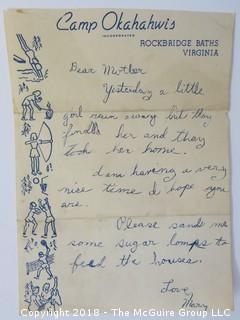 Camp Okahahwis
INCORPORATED
ROCKBRIDGE BATHS
VIRGINIA
Dear Mother
Yesterday a little
girl rain away but they
findlls her and thay
Toch her home.
I am having a very
nice time I hope you
are.
Please sands me
some sugar lomps to
feed the houses.
Love,
Mary
Copyright 2018 - The McGuire Group LLC